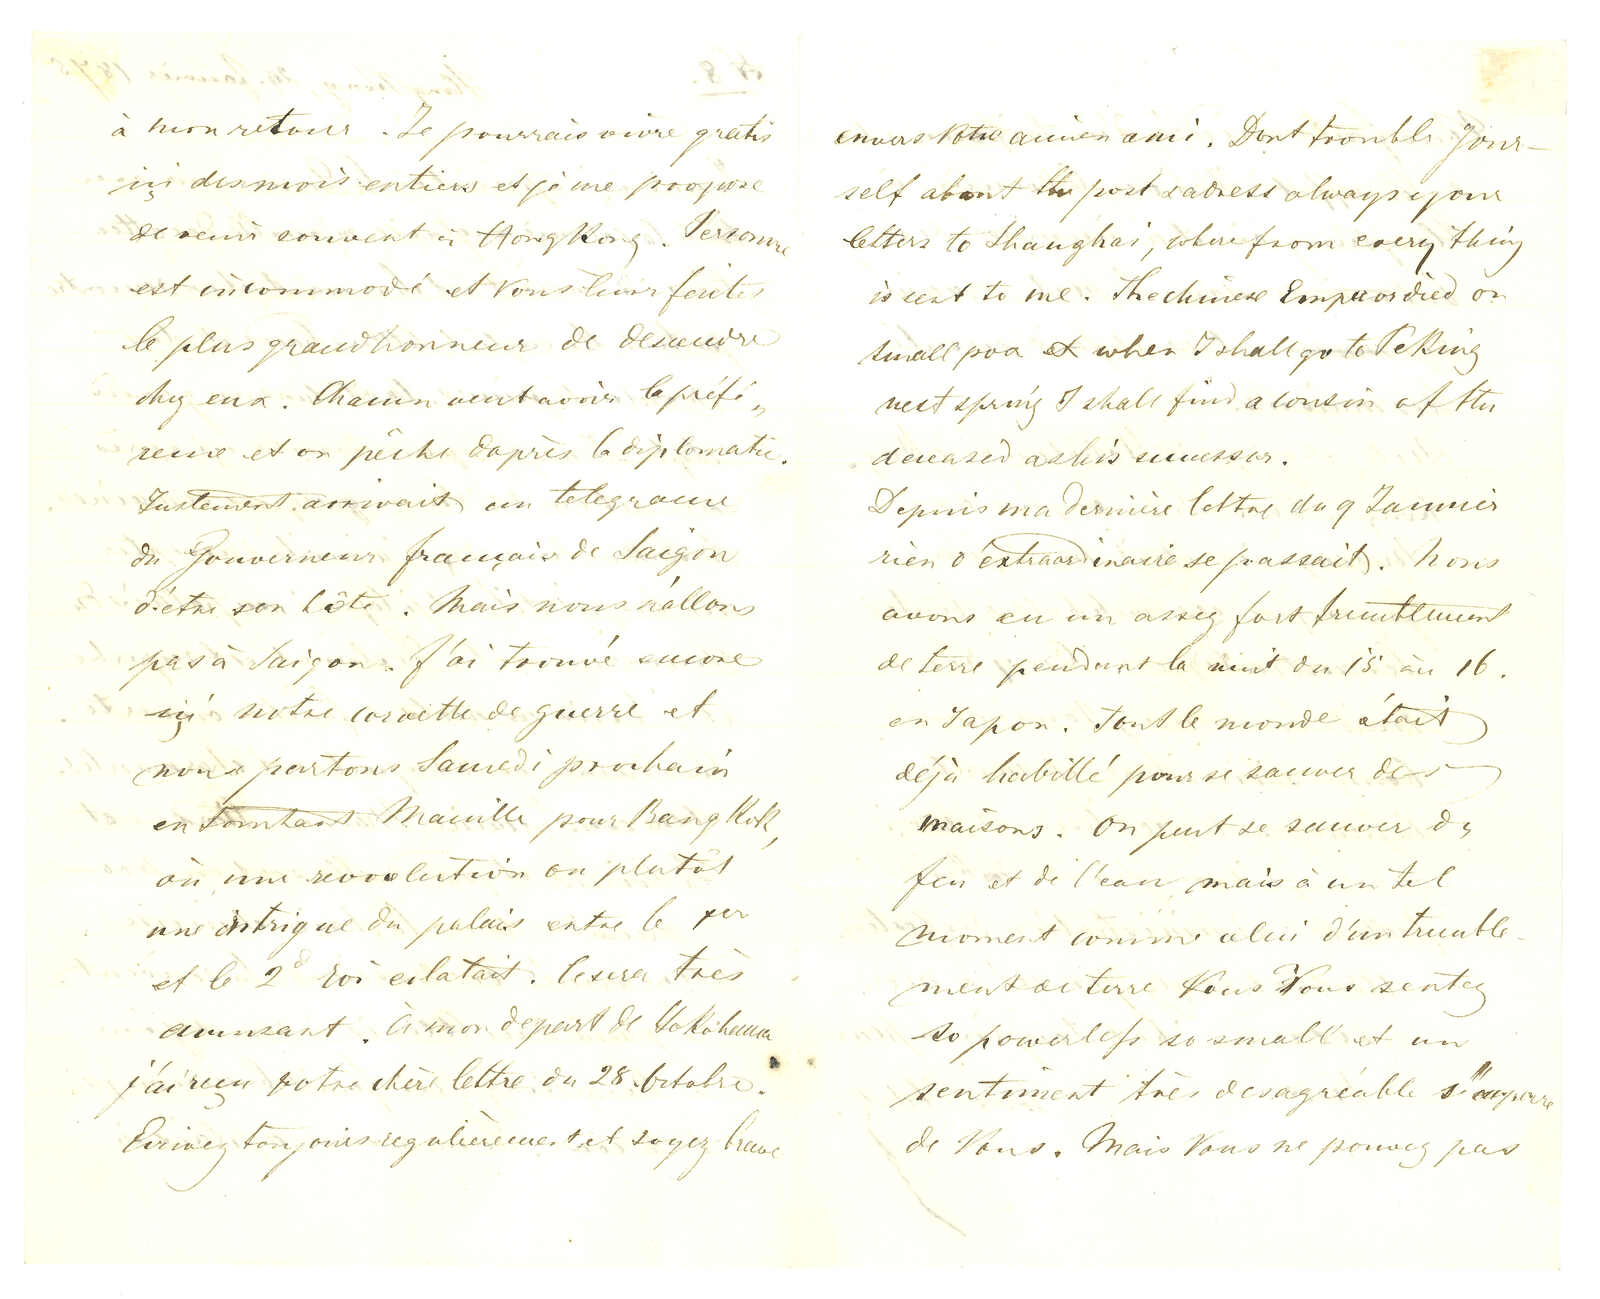 à mon retour. Je pourrais vivre gratis
içi des mois entiers et je me propose
de venir souvent à HongKong. Personne
est incommodé et Vous leur faites
le plus grand honneur de descendre
chez eux. Chacun veut avoir la préfé„
rence et on pêche d'après la diplomatie.
Justement arrivait un telegramme
du Gouverneur français de Saigon
d'être son hôte. Mais nous n'allons
pas à Saigon. J'ai trouvé encore
içi notre corvette de guerre et
nous partons Samedi prochain
en touchant Manille pour BangKok,
où une revolution ou plutôt
une intrigue du palais entre le 1er
et le 2d roi eclatait. Ce sera très
amusant. à mon depart de Yokohama
j'ai reçu votre chère lettre du 28 Octobre.
Ecrivez toujours regulièrement et soyez brave
envers Votre ancien ami. Dont trouble Your-
self about the post & adress always your
letters to Shanghai, where from every thing
is sent to me. The chinese Emperor died on
small pox et when I shall go to PeKing
next spring I shall find a cousin of the
deceased as his successor.
Depuis ma dernière lettre du 9 Januier
rien d'extraordinaire se passait. Nous
avons eu un assez fort tremblement
de terre pendant la nuit du 15 au 16.
en Japon. Tout le monde était
déjà habillé pour se sauver des
maisons. On peut se sauver du
feu et de l'eau mais à un tel
moment comme celui d'un tremble-
ment de terre Vous Vous sentez
so powerless so small et un
sentiment très desagréable s'empare
de Vous. Mais Vous ne pouvez pas